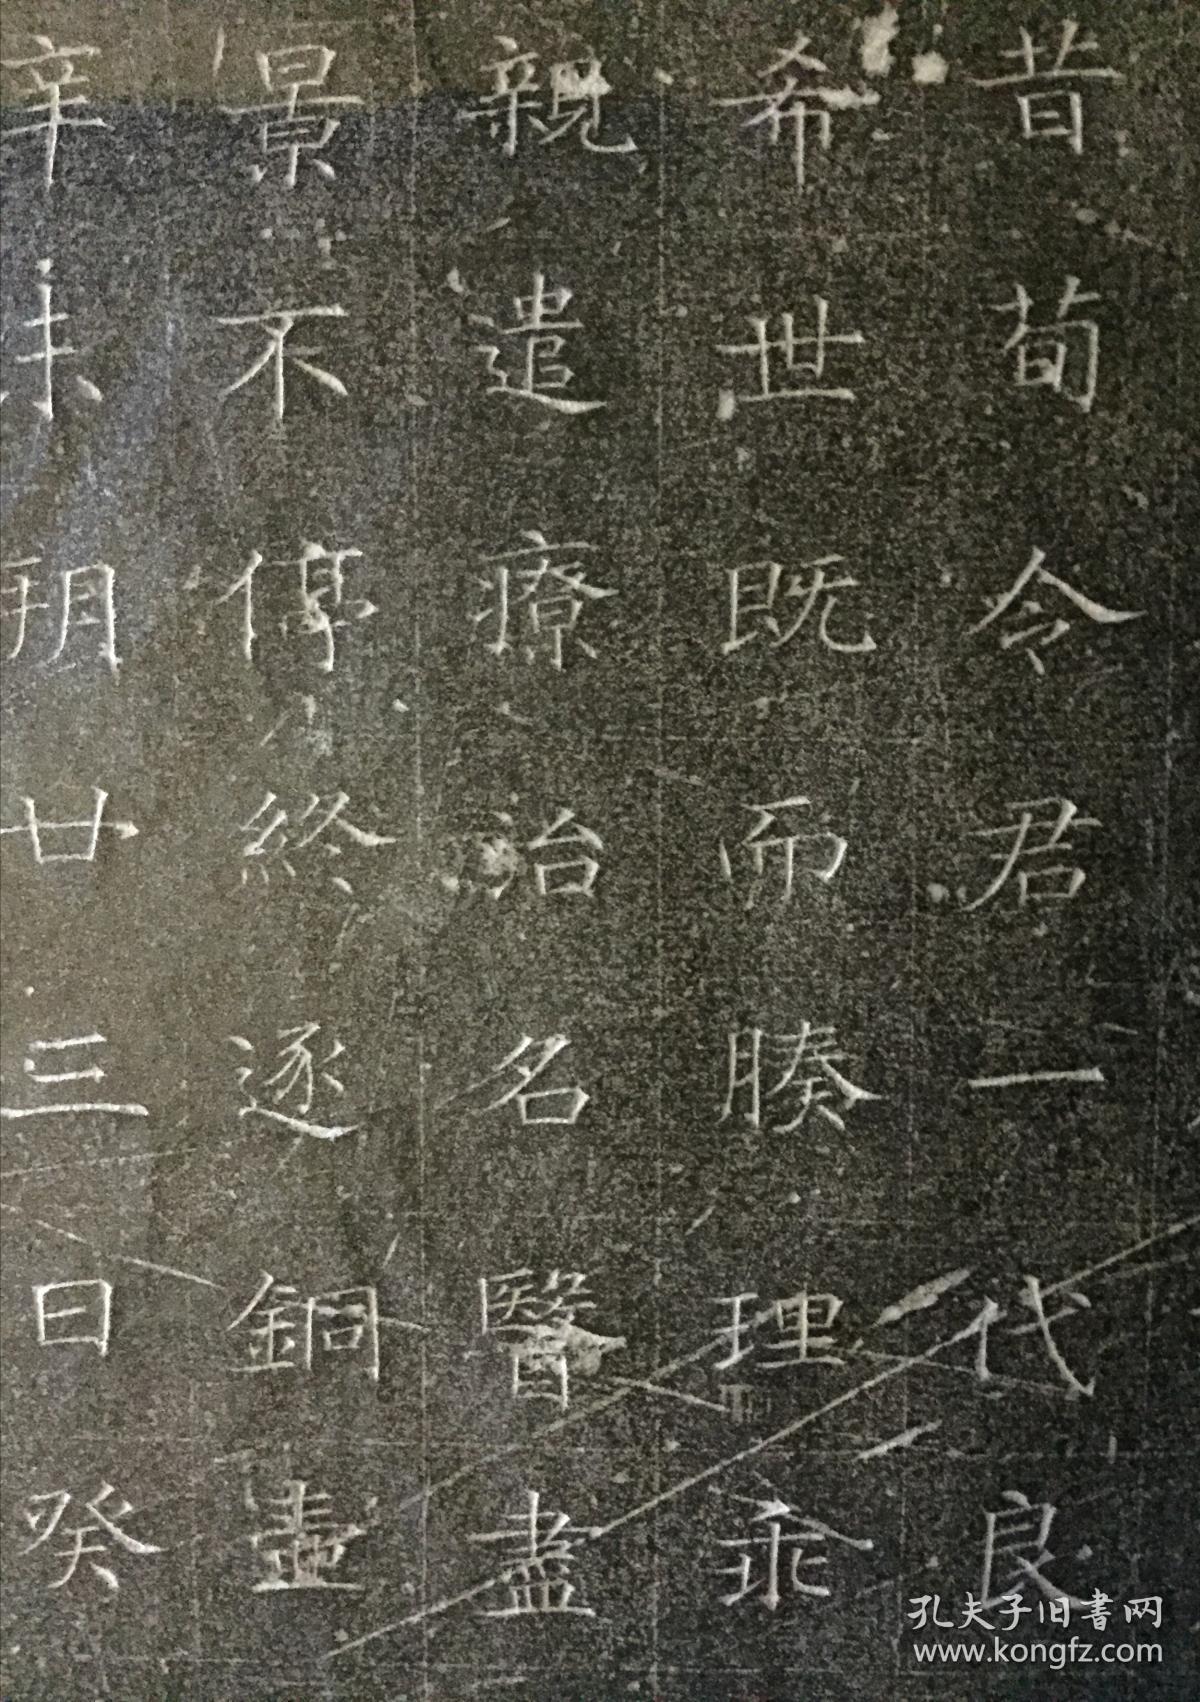 昔荀令君一代良
希世既而腠理乖
親遣療治名醫盡
景不停終逐銅壺
辛未朔廿三日癸
孔夫子旧書网
www.kongfz.com